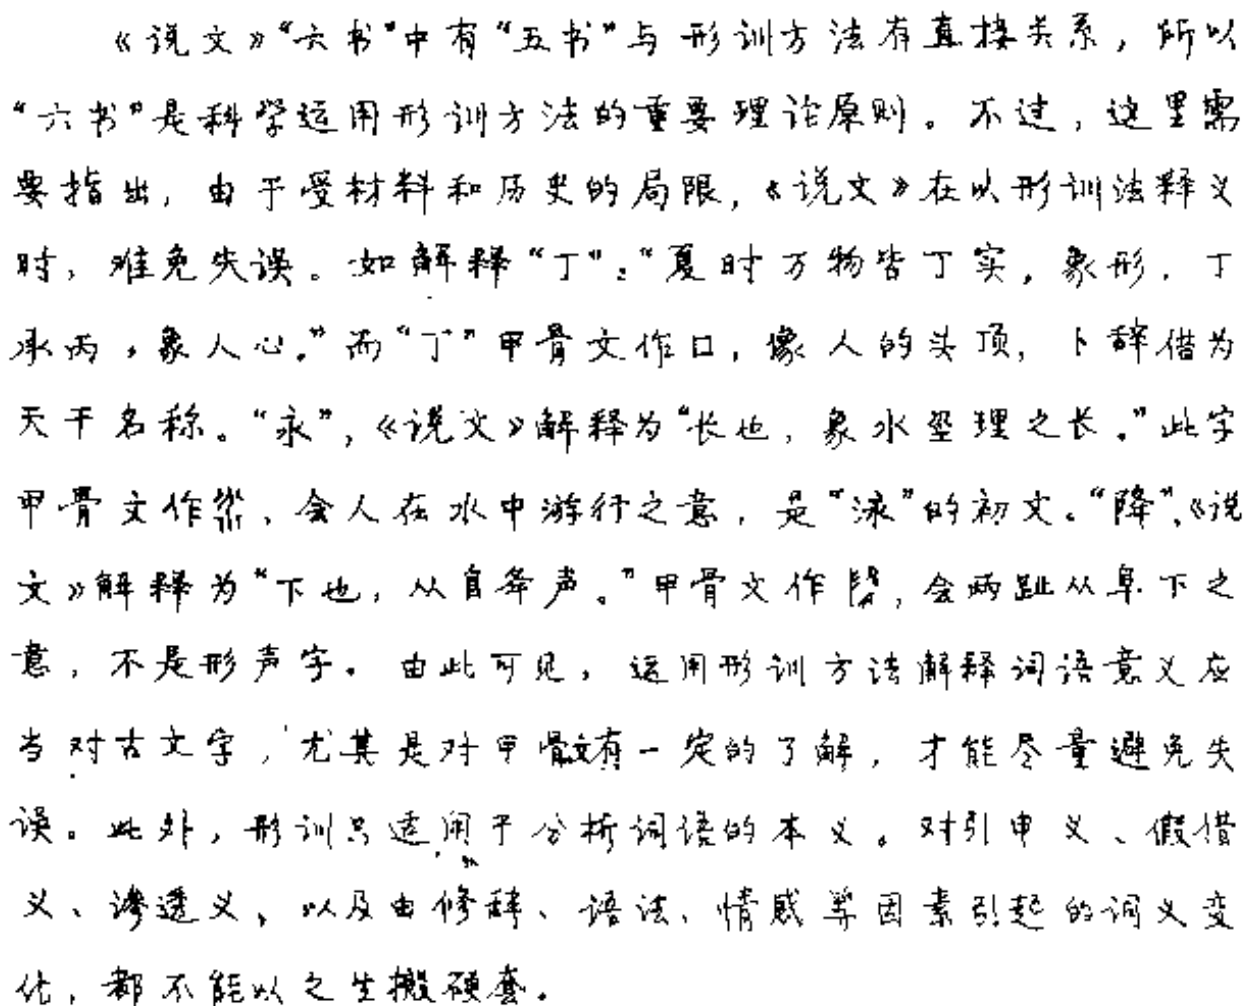 《说文》“六书”中有“五书”与形训方法有直接关系，所以
“六书”是科学运用形训方法的重要理论原则。不过，这里需
要指出，由于受材料和历史的局限，《说文》在以形训法释义
时，难免失误。如解释“丁”：“夏时万物皆丁实，象形，丁
承丙，象人心。”而“丁”甲骨文作口，像人的头顶，卜辞借为
天干名称。“永”，《说文》解释为“长也，象水坙理之长。”此字
甲骨文作，会人在水中游行之意，是“泳”的初文。“降”，《说
文》解释为“下也，从𨸏夅声。”甲骨文作，会两趾从阜下之
意，不是形声字。由此可见，运用形训方法解释词语意义应
当对古文字，尤其是对甲骨文有一定的了解，才能尽量避免失
误。此外，形训只适用于分析词语的本义。对引申义、假借
义、渗透义，以及由修辞、语法、情感等因素引起的词义变
化，都不能以之生搬硬套。